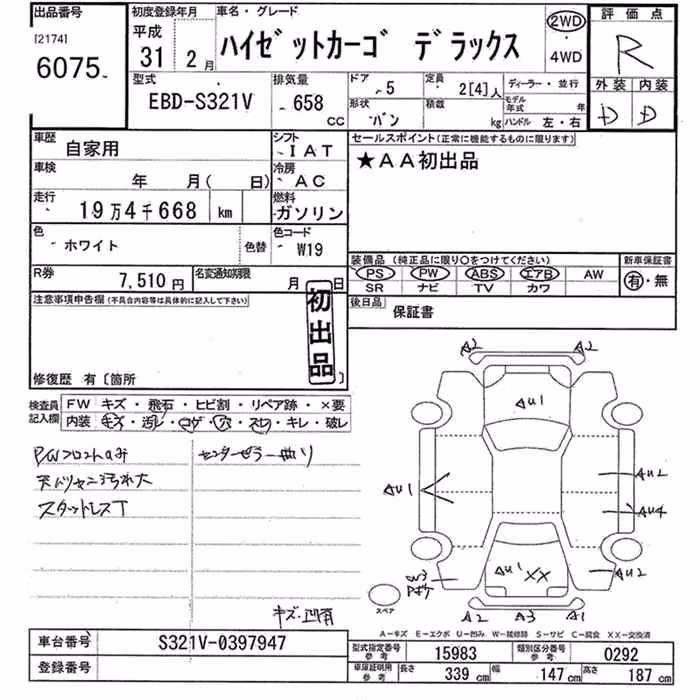 出品番号
[2174]
6075
初度登録年月
平成
31 2月
車名・グレード
ハイゼットカーゴ デラックス
2WD
4WD
評価点
R
外装 内装
D D
型式
EBD-S321V
排気量
658
CC
ドア
5
定員
2[4]人
形状
バン
積載
kg
ディーラー・並行
モデル年式 年
ハンドル 左・右
車歴
自家用
シフト
IAT
車検
年 月( 日)
冷房
AC
走行
19万4千668 km
燃料
ガソリン
色
ホワイト
色替
色コード
W19
R券
7,510円
名変通知期限
月 日
セールスポイント(正常に機能するものに限ります)
★AA初出品
装備品(純正品に限り○をつけてください)
PS PW ABS エアB AW
SR ナビ TV カワ
新車保証書
有・無
後日品
保証書
注意事項申告欄(不具合内容等は具体的に記入して下さい)
初出品
修復歴 有〔箇所 〕
検査員記入欄
FW キズ・飛石・ヒビ割・リペア跡・×要
内装 キズ・汚レ・コゲ・穴・スレ・キレ・破レ
PWフロントのみ
センターピラー曲り
スタットレスT
キズ・凹有
A2 A2
AU1
AU1
AU2
AU4
AU1 XX
W3
AU2
A2 A3 A1
スペア
A-キズ E-エクボ U-凹み W-補修跡 S-サビ C-腐食 XX-交換済
車台番号
S321V-0397947
登録番号
型式指定番号 参考
15983
類別区分番号 参考
0292
車庫証明用 参考
長さ 339 cm 幅 147 cm 高さ 187 cm